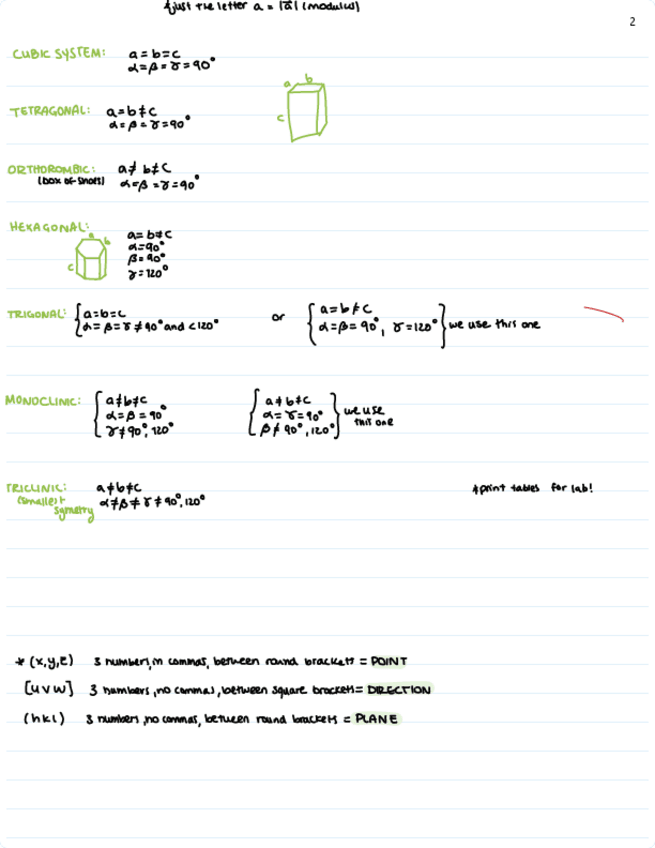 *just the letter a = |a⃗| (modulus)
2
CUBIC SYSTEM: a = b = c
α = β = γ = 90°
a b
c
TETRAGONAL: a = b ≠ c
α = β = γ = 90°
ORTHOROMBIC: a ≠ b ≠ c
(box of shoes) α = β = γ = 90°
HEXAGONAL: a = b ≠ c
a b
c
α = 90°
β = 90°
γ = 120°
TRIGONAL: { a = b = c
α = β = γ ≠ 90° and < 120°
or { a = b ≠ c
α = β = 90°, γ = 120° } we use this one
MONOCLINIC: { a ≠ b ≠ c
α = β = 90°
γ ≠ 90°, 120°
{ a ≠ b ≠ c
α = γ = 90°
β ≠ 90°, 120° } we use
this one
TRICLINIC: a ≠ b ≠ c
(smallest α ≠ β ≠ γ ≠ 90°, 120°
symetry
*print tables for lab!
* (x,y,z) 3 numbers, in commas, between round brackets = POINT
[u v w] 3 numbers, no commas, between square brackets = DIRECTION
(h k l) 3 numbers, no commas, between round brackets = PLANE